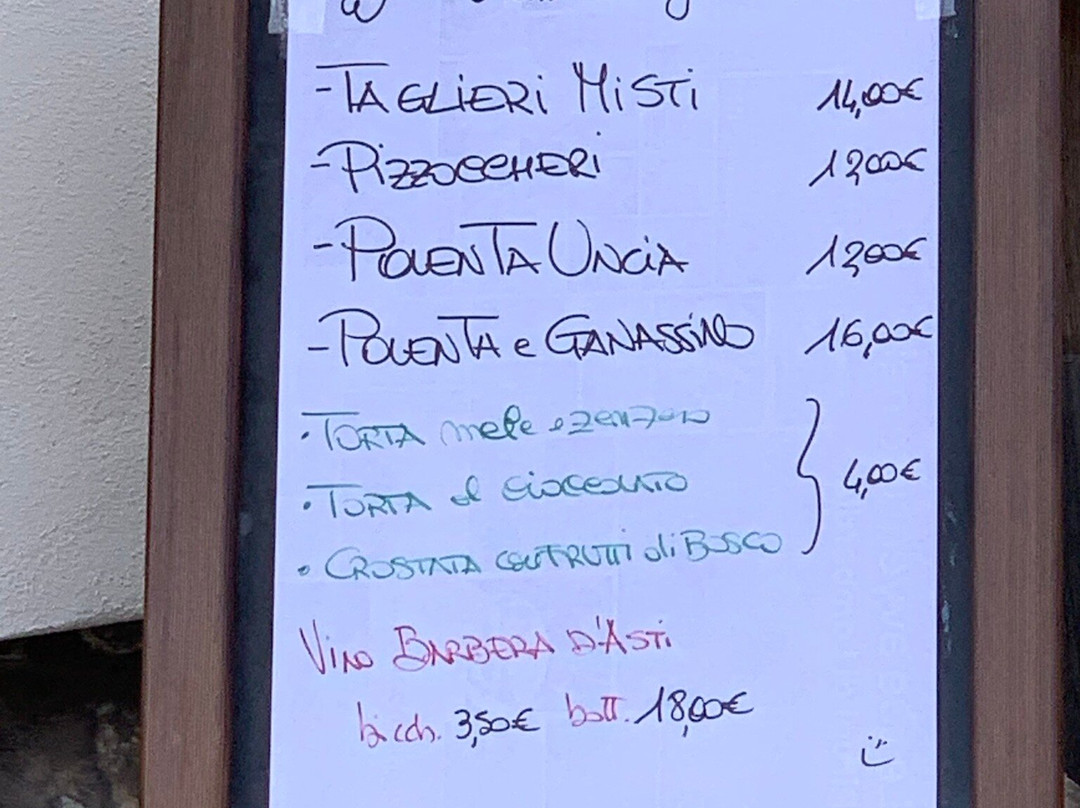 - TAGLIERI MiSTi 14,00€
- PiZZOCCHERi 12,00€
- POLENTA UNCiA 12,00€
- POLENTA e GANASSiNO 16,00€
· TORTA mele e zenzero
· TORTA al CiOCCOLATO 4,00€
· CROSTATA CON FRUTTi di BOSCO
ViNO BARBERA D'ASTi
bicch. 3,50€ bott. 18,00€